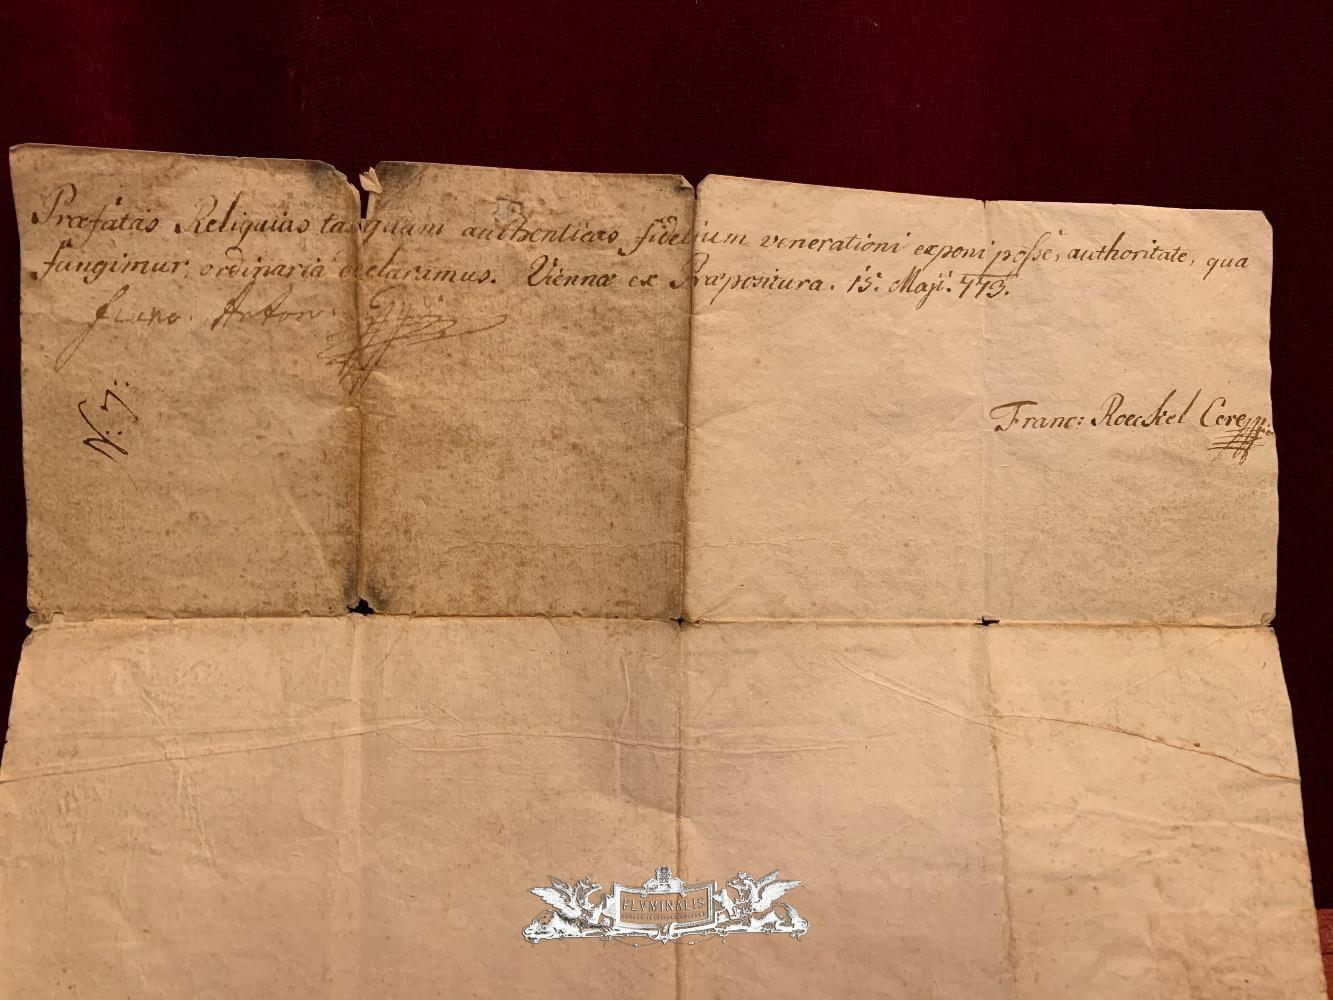 Præfatas Reliquias tanquam authenticas fidelium venerationi exponi posse, authoritate, qua
fungimur, ordinaria declaramus. Viennæ ex Præpositura. 15. Maji. 773.
Franc. Anton.
N. 7.
Franc: Roeckel
FLVMINALIS